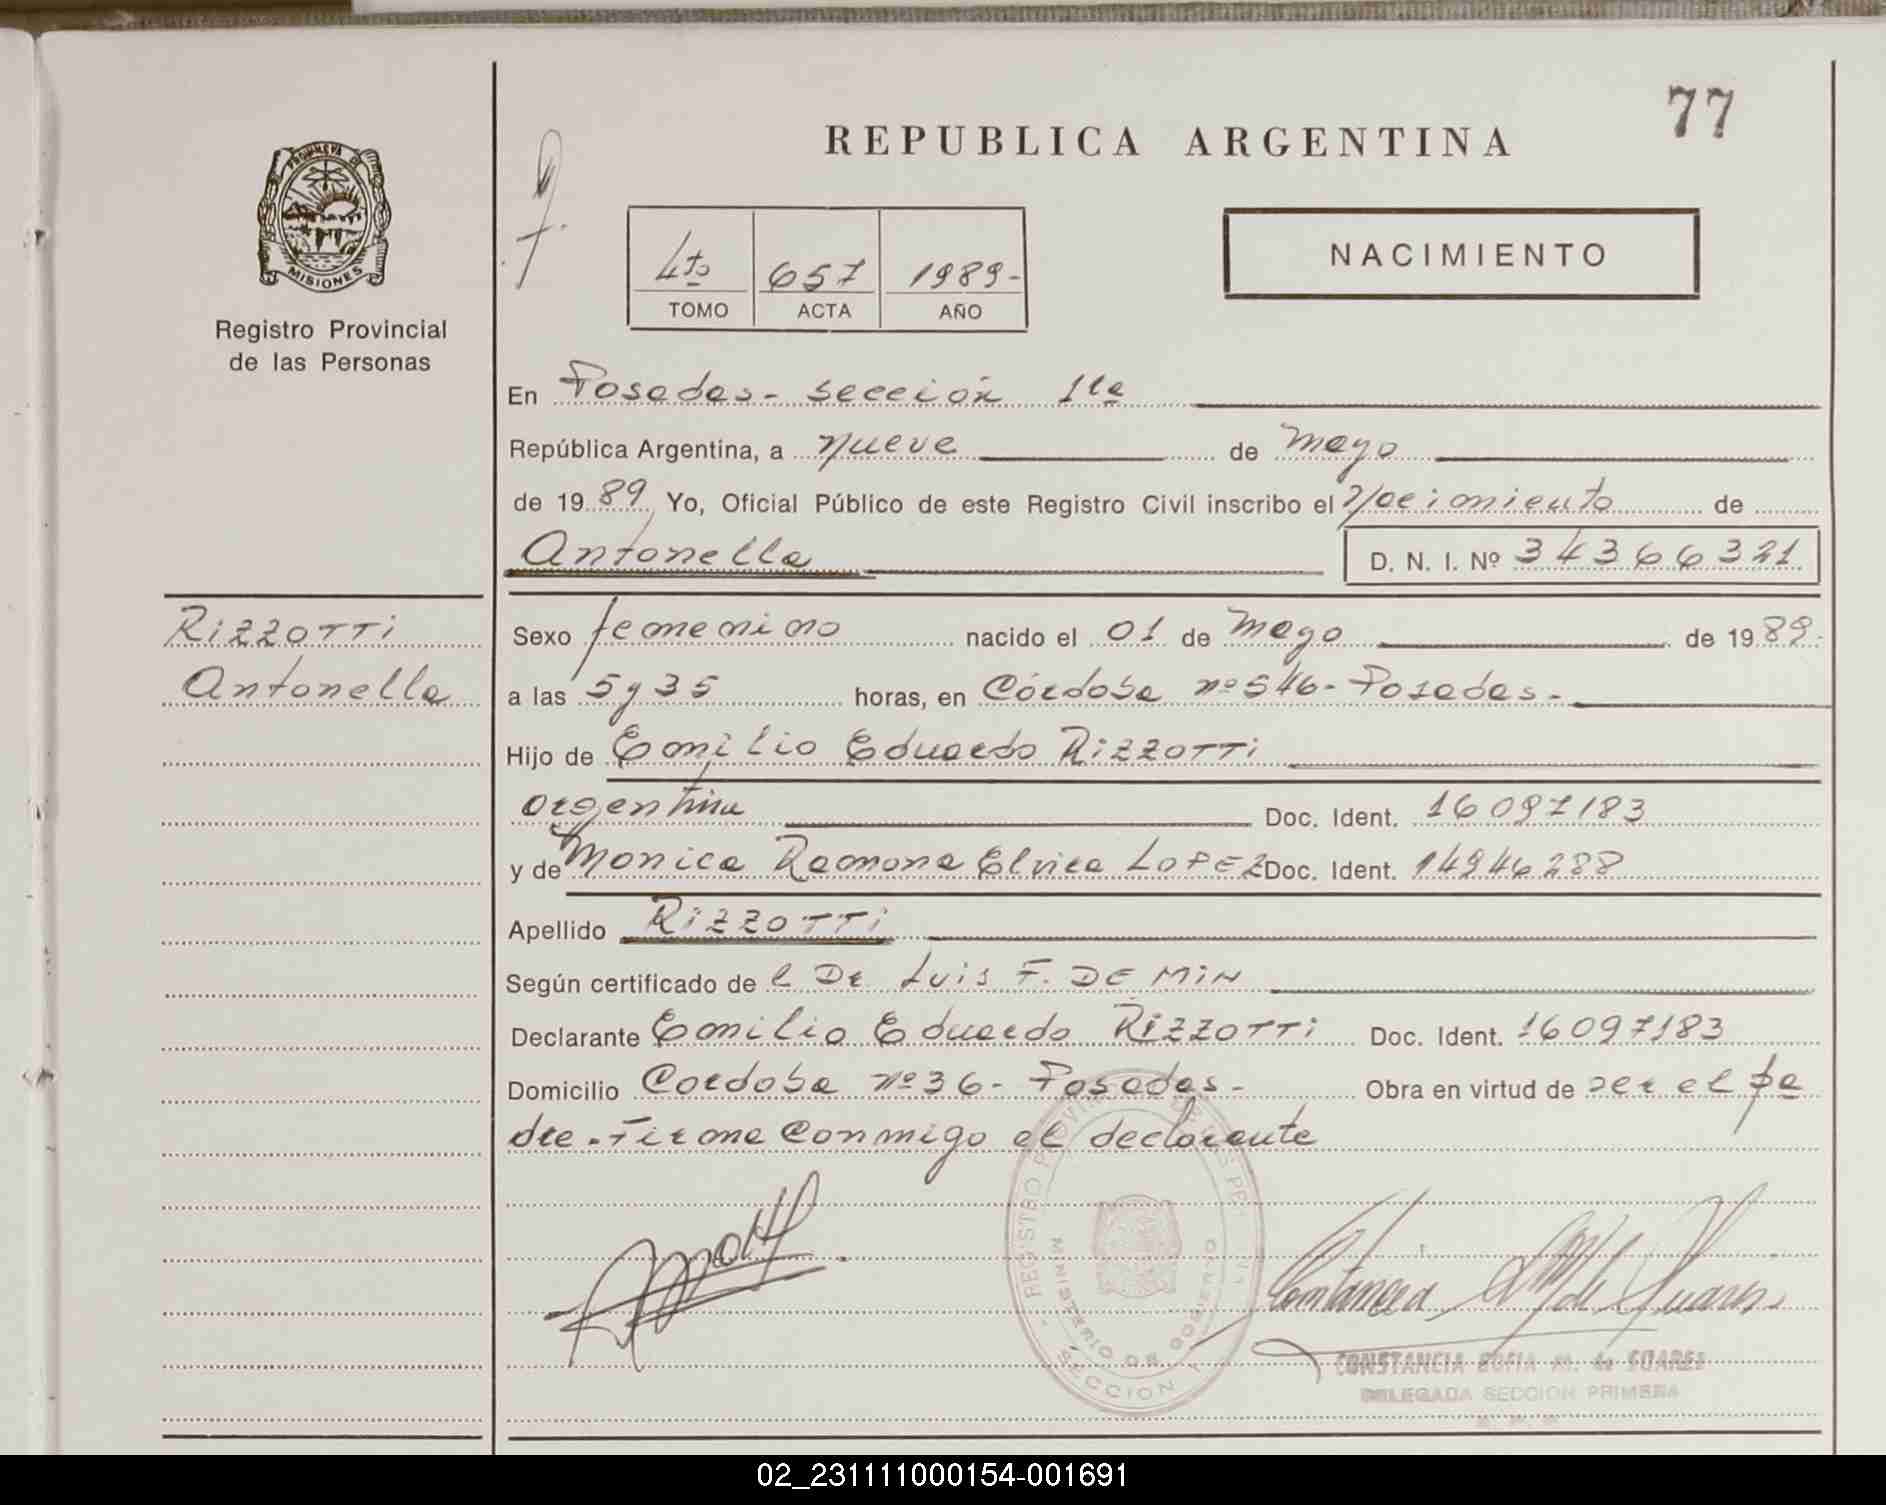 77
REPUBLICA ARGENTINA
PROVINCIA DE
MISIONES
Registro Provincial
de las Personas
4to 657 1989-
TOMO ACTA AÑO
NACIMIENTO
En Posadas - sección 1ra
República Argentina, a nueve de mayo
de 1989 Yo, Oficial Público de este Registro Civil inscribo el nacimiento de
Antonella D. N. I. Nº 34366321
Rizzotti
Antonella
Sexo femenino nacido el 01 de mayo de 1989.
a las 5 y 35 horas, en Córdoba nº 546 - Posadas -
Hijo de Emilio Eduardo Rizzotti
argentina Doc. Ident. 16097183
y de Monica Ramona Elvira LOPEZ Doc. Ident. 14946288
Apellido Rizzotti
Según certificado de l Dr Luis F. DE MIN
Declarante Emilio Eduardo Rizzotti Doc. Ident. 16097183
Domicilio Cordoba nº 36 - Posadas - Obra en virtud de ser el pa
dre. Firma conmigo el declarante
REGISTRO PROVINCIAL DE LAS PERSONAS
MINISTERIO DE GOBIERNO
SECCION 1
Constancia S M de Suares
CONSTANCIA SOFIA M. de SUARES
DELEGADA SECCION PRIMERA
02_231111000154-001691